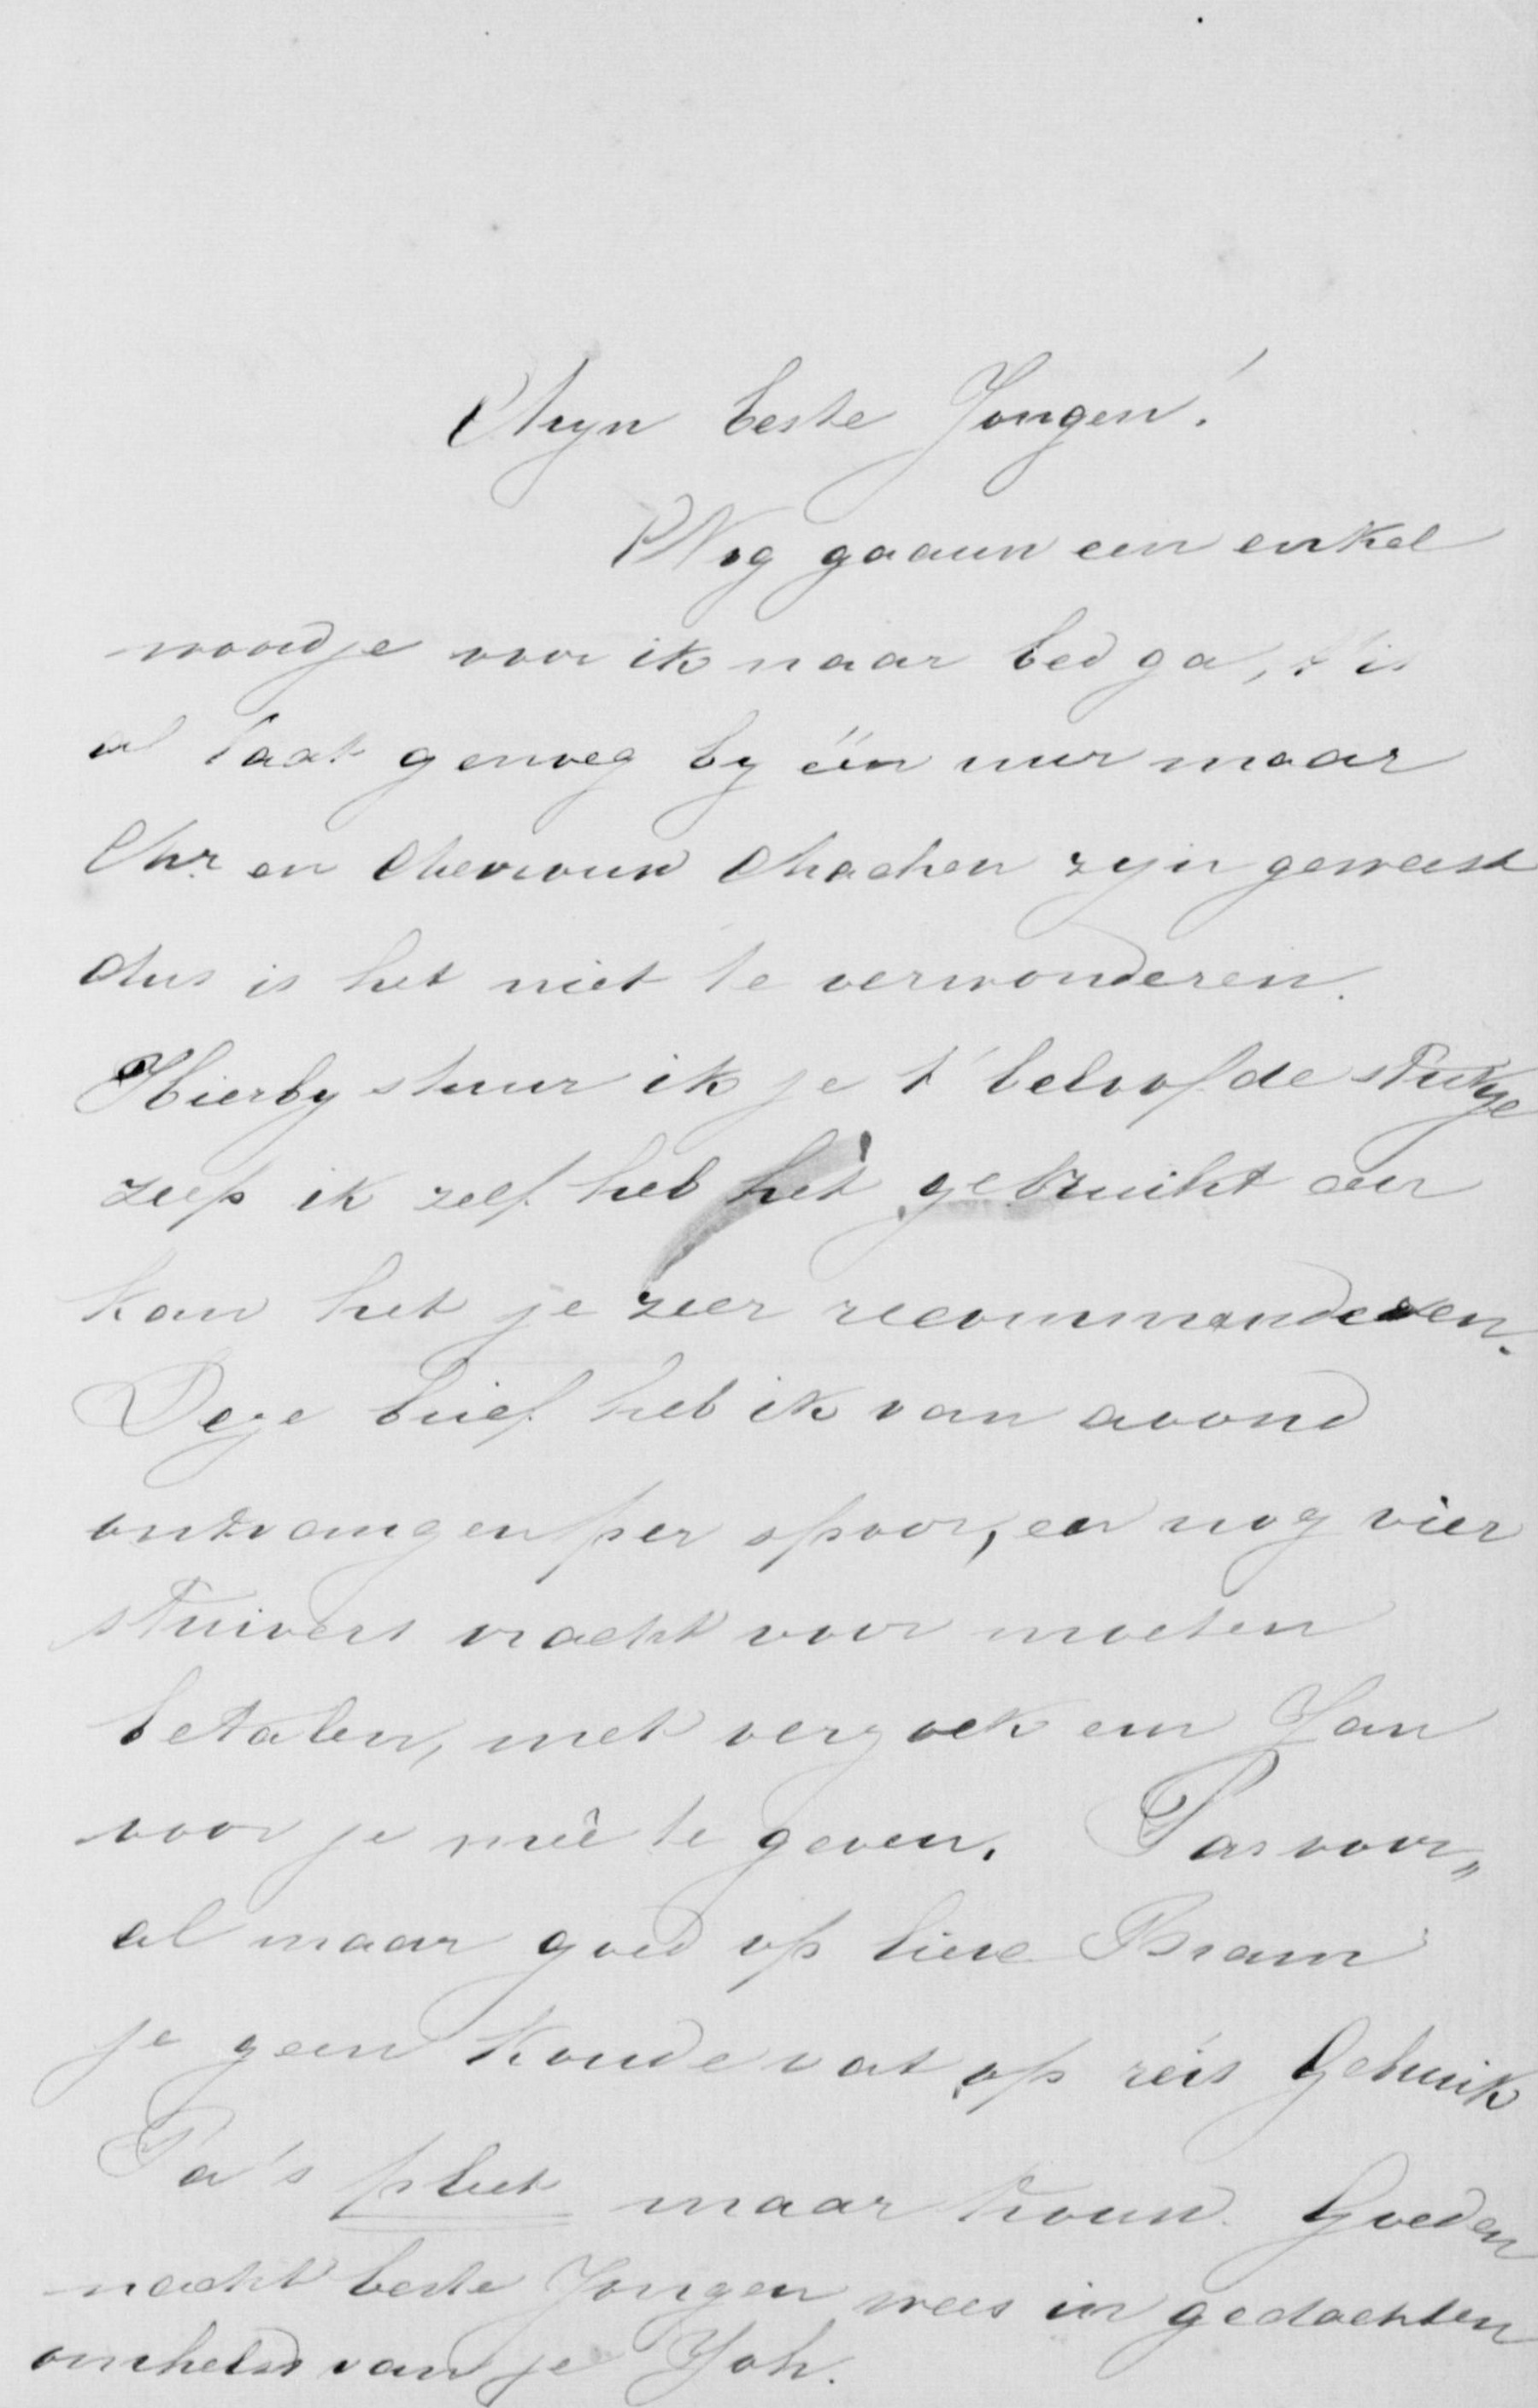 Myn beste Jongen!
Nog gaauw een enkel
woordje voor ik naar bed ga, 't is
al laat genoeg by één uur maar
Mr. en Mevrouw Machen zyn geweest
dus is het niet te verwonderen.
Hierby stuur ik je t' beloofde stukje
zeep ik zelf heb het gebruikt en
kan het je zeer recommanderen.
Deze brief heb ik van avond
ontvangen per spoor, en nog vier
stuivers vracht voor moeten
betalen, met verzoek em Jan
voor je meê te geven. Pas voor„
al maar goed op lieve Bram
je geen koude vat op reis Gebruik
Pa's plet maar trouw. Goeden
nacht beste Jongen wees in gedachten
omhelsd van je Joh.